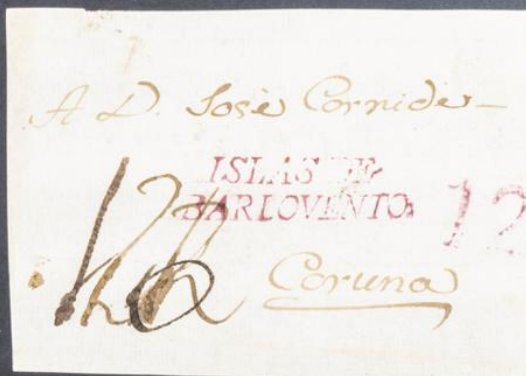 A D. Josè Cornide
ISLAS DE
BARLOVENTO 12
Coruna